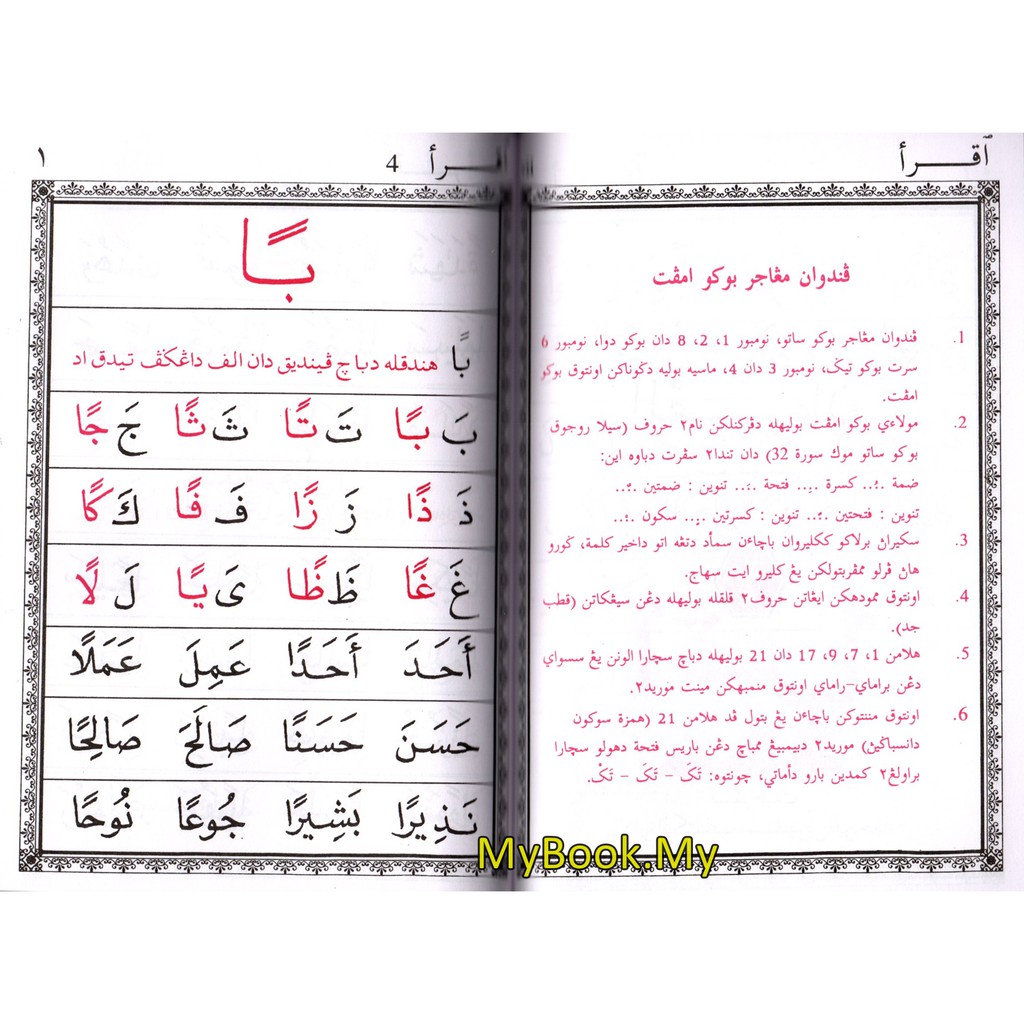 اقــــرأ
ڤندوان مڠاجر بوكو امڤت
1. ڤندوان مڠاجر بوكو ساتو، نومبور 1، 2، 8 دان بوكو دوا، نومبور 6
سرت بوكو تيݢ، نومبور 3 دان 4، ماسيه بوليه دݢوناكن اونتوق بوكو
امڤت.
2. مولاءي بوكو امڤت بوليهله دڤركنلكن نام٢ حروف (سيلا روجوق
بوكو ساتو موك سورة 32) دان تندا٢ سڤرت دباوه اين:
ضمة .ـُ.. كسرة .ـِ.. فتحة .ـَ.. تنوين : ضمتين .ـٌ..
تنوين : فتحتين .ـً.. تنوين : كسرتين .ـٍ.. سكون .ـْ..
3. سكيراڽ برلاكو ككليروان باچاءن سماد دتڠه اتو داخير كلمة، ݢورو
هاڽ ڤرلو ممڤربتولكن يڠ كليرو ايت سهاج.
4. اونتوق ممودهكن ايڠاتن حروف٢ قلقله بوليهله دڠن سيڠكاتن (قطب
جد).
5. هلامن 1، 7، 9، 17 دان 21 بوليهله دباچ سچارا الونن يڠ سسواي
دڠن براماي-راماي اونتوق منمبهكن مينت موريد٢.
6. اونتوق مننتوكن باچاءن يڠ بتول ڤد هلامن 21 (همزة سوكون
دانسباݢيڽ) موريد٢ دبيمبيڠ ممباچ دڠن باريس فتحة دهولو سچارا
براولڠ٢ كمدين بارو دأماتي، چونتوه: تَكَ - تَكَ - تَكْ.
اقــــرأ 4
١
بًا
بًا هندقله دباچ ڤينديق دان الف داڠݢڤ تيدق اد
بَ بًا تَ تًا ثَ ثًا جَ جًا
ذَ ذًا زَ زًا فَ فًا كَ كًا
غَ غًا ظَ ظًا ىَ يًا لَ لًا
أَحَدَ أَحَدًا عَمِلَ عَمَلًا
حَسَنَ حَسَنًا صَالَحَ صَالِحًا
نَذِيرًا بَشِيرًا جُوعًا نُوحًا
MyBook.My